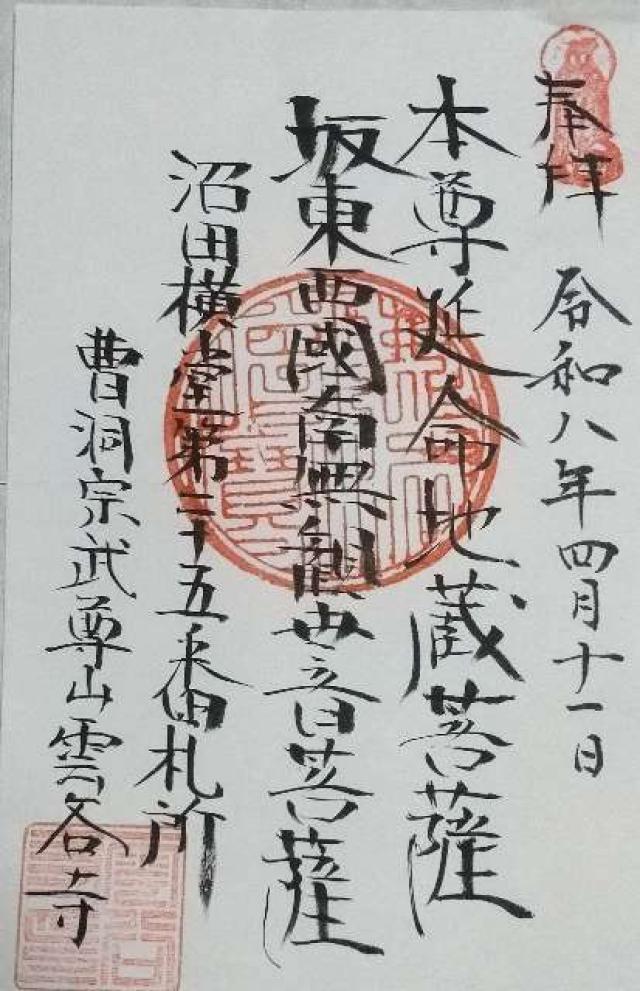 奉拝 令和八年四月十一日
本尊延命地蔵菩薩
坂東西國南無観世音菩薩
沼田横堂第二十五番札所
曹洞宗武尊山雲谷寺